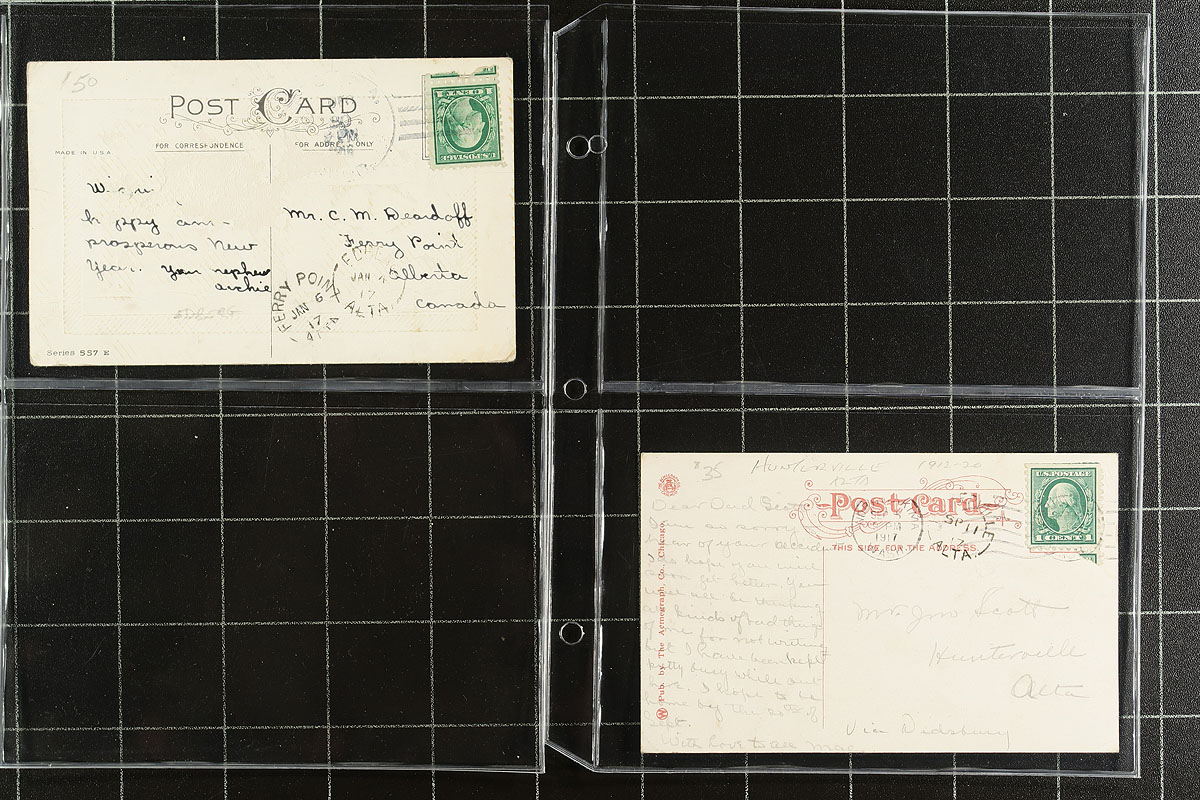 150
POST CARD
MADE IN U.S.A.
FOR CORRESPONDENCE
FOR ADDRESS ONLY
U.S. POSTAGE
PM
happy and
prosperous New
Year. Your nephew
archie
Mr. C. M. Deardoff
Ferry Point
Alberta
Canada
FERRY POINT
JAN 6
17
ALTA
JAN
17
ALTA.
Series 557 E
$35
HUNTERVILLE 1913-20
Post Card
THIS SIDE FOR THE ADDRESS.
U.S. POSTAGE
1 CENT 1
PM
1917
WASH.
VILLE
SP 11
17
ALTA.
Pub. by The Acmegraph Co., Chicago.
Dear Dad Scott
I am so sorry to
hear of your accident
I do hope you will
soon get better. You
will all be thinking
all kinds of bad things
of me for not writing
but I have been kept
pretty busy while out
here. I hope to be
home by the 20th of
Sept.
With love to all
Mr Jno Scott
Hunterville
Alta
Via Didsbury